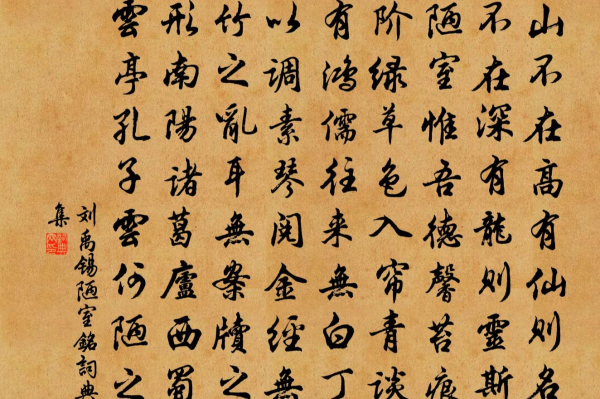 山不在高有仙则名
不在深有龍则靈斯
陋室惟吾德馨苔痕
阶绿草色入帘青谈
有鸿儒往来無白丁
以调素琴阅金經無
竹之亂耳無案牍之
形南陽诸葛廬西蜀
雲亭孔子雲何陋之
刘禹锡陋室銘詞典
集